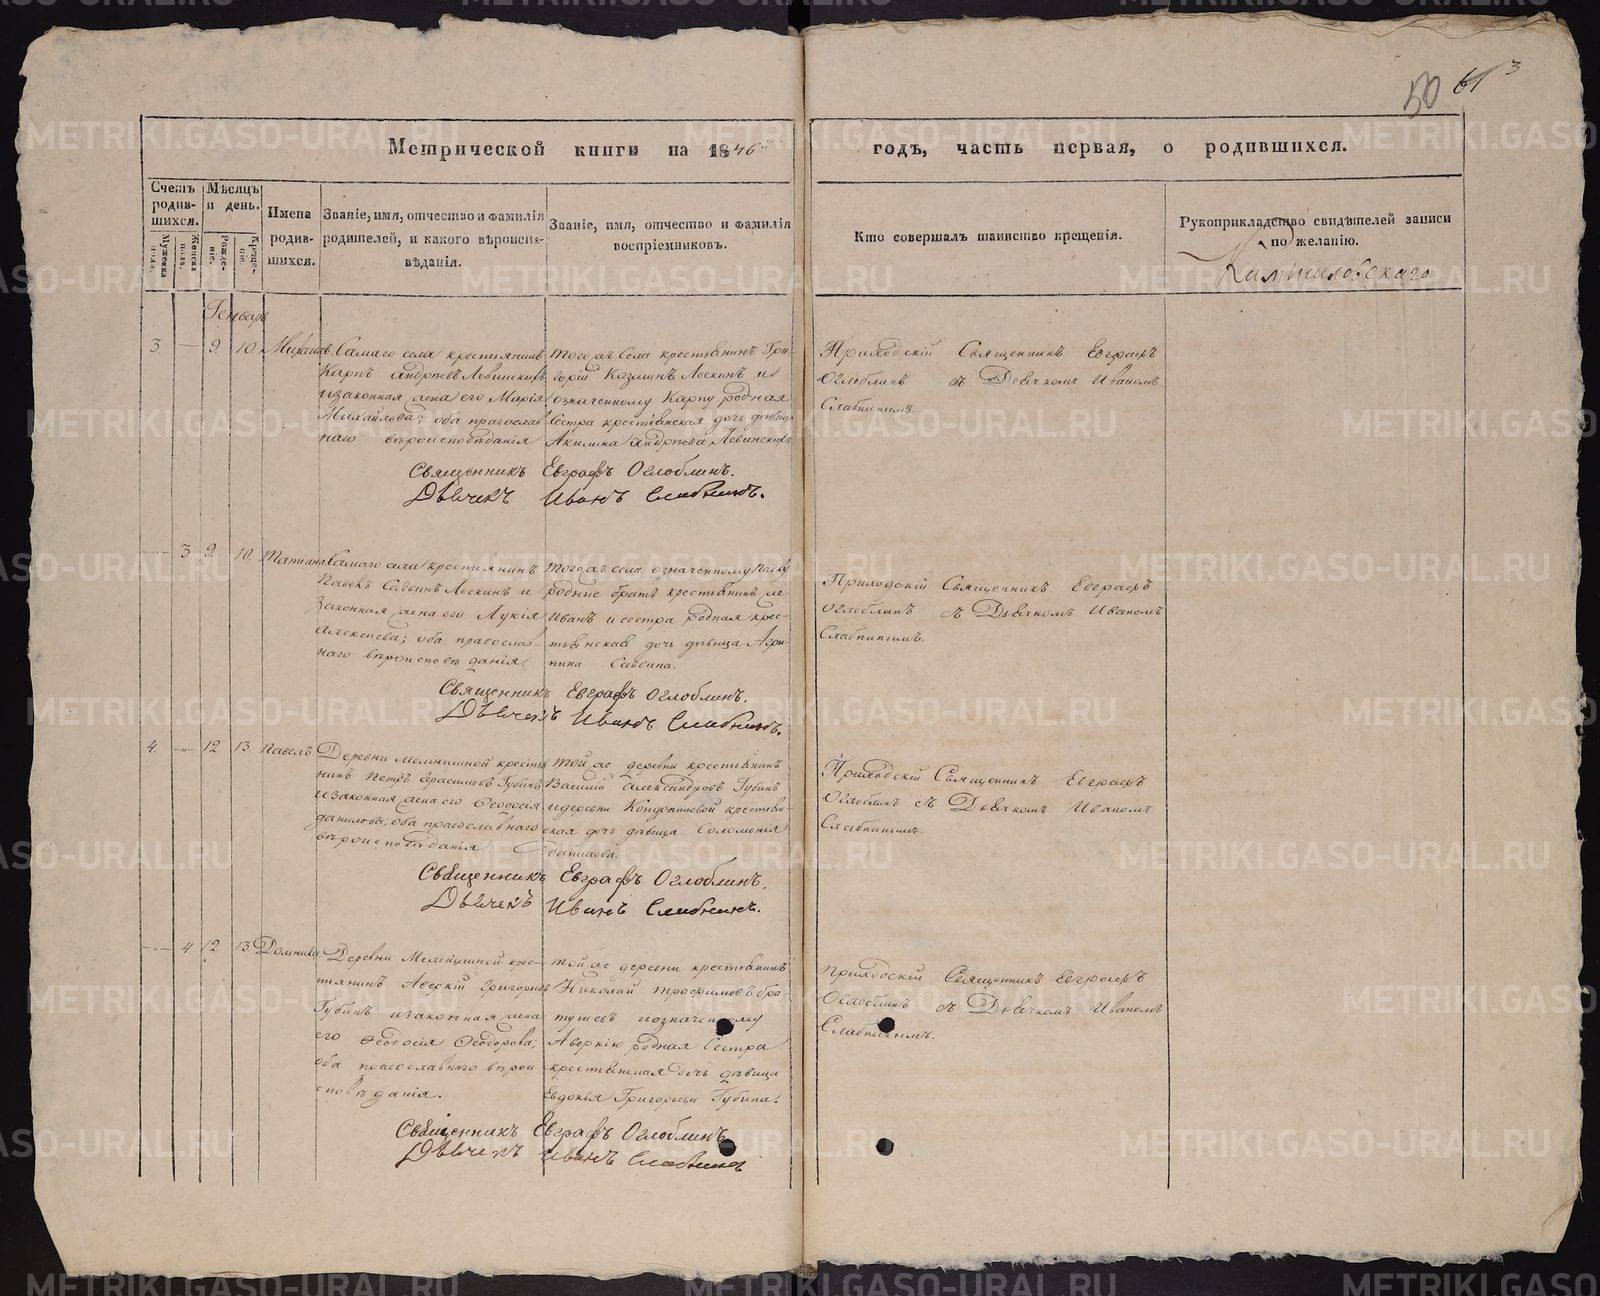 50 61 3
Метрической книги на 1846 годъ, часть первая, о родившихся.
Счетъ родив-шихся.
Мужеска пола.
Женска пола.
Мѣсяцъ и день.
Рожде-ніе.
Креще-ніе.
Имена родив-шихся.
Званіе, имя, отчество и фамилія
родителей, и какого вѣроиспо-
вѣданія.
Званіе, имя, отчество и фамилія
воспріемниковъ.
Кто совершалъ таинство крещенія.
Рукоприкладство свидѣтелей записи
по желанію.
Камышловскаго
Генварь
3. — 9. 10.
Самаго села крестьянинъ
Карпъ Андреевъ Левинскихъ
и законная жена его Марія
Михайлова; оба православ
наго вѣроисповѣданія
того жъ села крестьянинъ Гри-
горій Козминъ Лескинъ и
означенному Карпу родная
сестра крестьянская дочь дѣвица
Акилина Андреева Левинскихъ
Приходскій Священникъ Евграфъ
Оглоблинъ съ Дьячкомъ Иваномъ
Слабнинымъ.
Священникъ Евграфъ Оглоблинъ.
Дьячекъ Иванъ Слабнинъ.
— 3. 9. 10. Татіана
Самаго села крестьянинъ
Павелъ Саввинъ Лескинъ и
законная жена его Лукія
Алексѣева; оба православ-
наго вѣроисповѣданія.
того жъ села означенному Павлу
родные братъ крестьянинъ же
Иванъ и сестра родная крес-
тьянская дочь дѣвица Агри-
пина Саввина.
Приходскій Священникъ Евграфъ
Оглоблинъ съ Дьячкомъ Иваномъ
Слабнинымъ.
Священникъ Евграфъ Оглоблинъ.
Дьячекъ Иванъ Слабнинъ.
4. — 12. 13. Павелъ
Деревни Мельнишной крестья
нинъ Петръ Герасимовъ Губинъ
и законная жена его Ѳеодосія
Данилова; оба православнаго
вѣроисповѣданія.
той же деревни крестьянинъ
Василій Александровъ Губинъ
и деревни Кондратьевой крестьян-
ская дочь дѣвица Соломонія
Данилова.
Приходскій Священникъ Евграфъ
Оглоблинъ съ Дьячкомъ Иваномъ
Слабнинымъ.
Священникъ Евграфъ Оглоблинъ.
Дьячекъ Иванъ Слабнинъ.
— 4. 12. 13. Домника
Деревни Мельнишной крес-
тьянинъ Аверкій Григорьевъ
Губинъ и законная жена
его Ѳеодосія Ѳеодорова;
оба православнаго вѣрои
сповѣданія.
той же деревни крестьянинъ
Николай Трофимовъ Бра-
тушевъ и означенному
Аверкію родная сестра
крестьянская дочь дѣвица
Евдокія Григорьева Губина.
Приходскій Священникъ Евграфъ
Оглоблинъ съ Дьячкомъ Иваномъ
Слабнинымъ.
Священникъ Евграфъ Оглоблинъ
Дьячекъ Иванъ Слабнинъ
METRIKI.GASO-URAL.RU